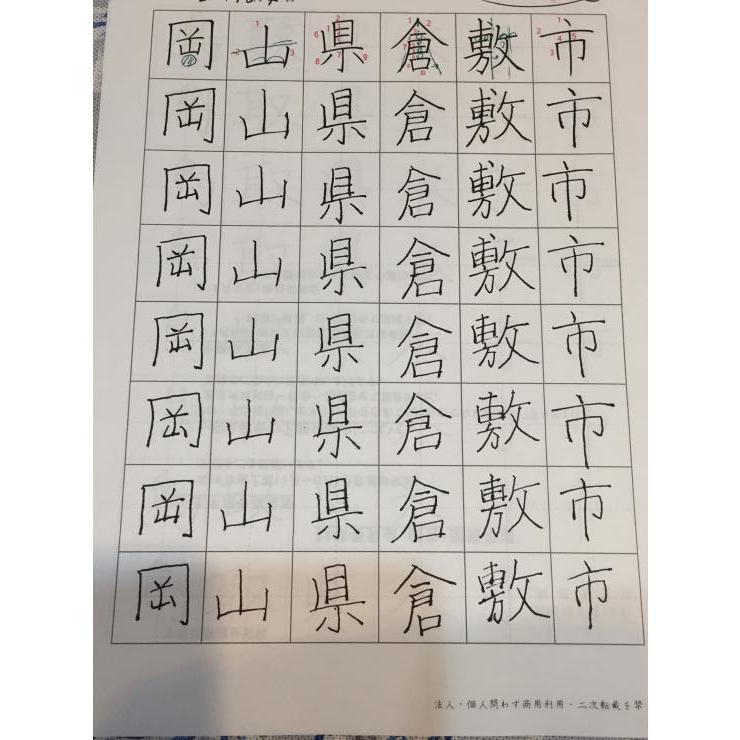 岡山県倉敷市
岡山県倉敷市
岡山県倉敷市
岡山県倉敷市
岡山県倉敷市
岡山県倉敷市
岡山県倉敷市
岡山県倉敷市
法人・個人問わず商用利用・二次転載を禁